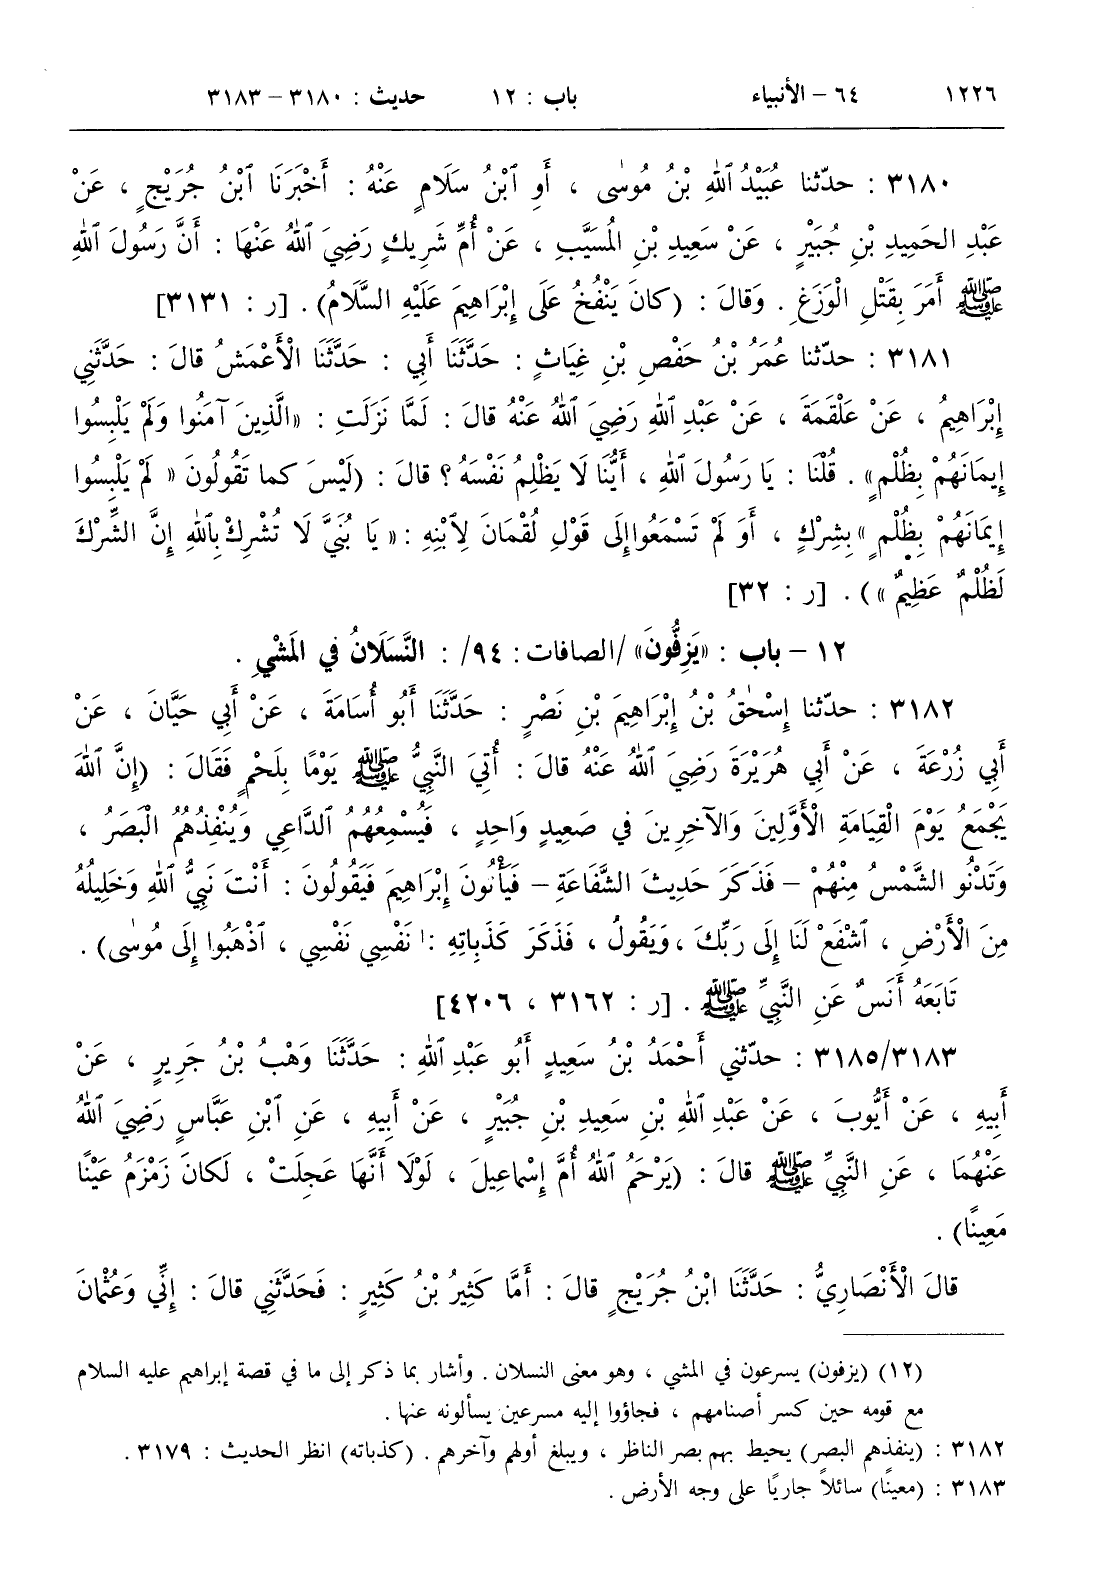 ١٢٢٦ ٦٤ – الأنبياء باب : ١٢ حديث : ٣١٨٠ – ٣١٨٣
٣١٨٠ : حدّثنا عُبَيْدُ ٱللهِ بْنُ مُوسٰى ، أَوِ ٱبْنُ سَلَامٍ عَنْهُ : أَخْبَرَنَا ٱبْنُ جُرَيْجٍ ، عَنْ
عَبْدِ الحَمِيدِ بْنِ جُبَيْرٍ ، عَنْ سَعِيدِ بْنِ المُسَيَّبِ ، عَنْ أُمِّ شَرِيكٍ رَضِيَ ٱللهُ عَنْهَا : أَنَّ رَسُولَ ٱللهِ
ﷺ أَمَرَ بِقَتْلِ الْوَزَغِ . وَقالَ : (كانَ يَنْفُخُ عَلَى إِبْرَاهِيمَ عَلَيْهِ السَّلَامُ) . [ر : ٣١٣١]
٣١٨١ : حدّثنا عُمَرُ بْنُ حَفْصِ بْنِ غِيَاثٍ : حَدَّثَنَا أَبِي : حَدَّثَنَا الْأَعْمَشُ قالَ : حَدَّثَنِي
إِبْرَاهِيمُ ، عَنْ عَلْقَمَةَ ، عَنْ عَبْدِ ٱللهِ رَضِيَ ٱللهُ عَنْهُ قالَ : لَمَّا نَزَلَتِ : «الَّذِينَ آمَنُوا وَلَمْ يَلْبِسُوا
إِيمَانَهُمْ بِظُلْمٍ» . قُلْنَا : يَا رَسُولَ ٱللهِ ، أَيُّنَا لَا يَظْلِمُ نَفْسَهُ ؟ قالَ : (لَيْسَ كما تَقُولُونَ « لَمْ يَلْبِسُوا
إِيمَانَهُمْ بِظُلْمٍ » بِشِرْكٍ ، أَوَ لَمْ تَسْمَعُوا إِلَى قَوْلِ لُقْمَانَ لِٱبْنِهِ : « يَا بُنَيَّ لَا تُشْرِكْ بِٱللهِ إِنَّ الشِّرْكَ
لَظُلْمٌ عَظِيمٌ » ) . [ر : ٣٢]
١٢ – باب : «يَزِفُّونَ» /الصافات: ٩٤/ : النَّسَلَانُ في المَشْيِ .
٣١٨٢ : حدّثنا إِسْحٰقُ بْنُ إِبْرَاهِيمَ بْنِ نَصْرٍ : حَدَّثَنَا أَبُو أُسَامَةَ ، عَنْ أَبِي حَيَّانَ ، عَنْ
أَبِي زُرْعَةَ ، عَنْ أَبِي هُرَيْرَةَ رَضِيَ ٱللهُ عَنْهُ قالَ : أُتِيَ النَّبِيُّ ﷺ يَوْمًا بِلَحْمٍ فَقَالَ : (إِنَّ ٱللهَ
يَجْمَعُ يَوْمَ الْقِيَامَةِ الْأَوَّلِينَ وَالْآخِرِينَ في صَعِيدٍ وَاحِدٍ ، فَيُسْمِعُهُمُ ٱلدَّاعِي وَيُنْفِذُهُمُ الْبَصَرُ ،
وَتَدْنُو الشَّمْسُ مِنْهُمْ – فَذَكَرَ حَدِيثَ الشَّفَاعَةِ – فَيَأْتُونَ إِبْرَاهِيمَ فَيَقُولُونَ : أَنْتَ نَبِيُّ ٱللهِ وَخَلِيلُهُ
مِنَ الْأَرْضِ ، ٱشْفَعْ لَنَا إِلَى رَبِّكَ ، وَيَقُولُ ، فَذَكَرَ كَذَبَاتِهِ : نَفْسِي نَفْسِي ، ٱذْهَبُوا إِلَى مُوسٰى) .
تَابَعَهُ أَنَسٌ عَنِ النَّبِيِّ ﷺ . [ر : ٣١٦٢ ، ٤٢٠٦]
٣١٨٥/٣١٨٣ : حدّثني أَحْمَدُ بْنُ سَعِيدٍ أَبُو عَبْدِ ٱللهِ : حَدَّثَنَا وَهْبُ بْنُ جَرِيرٍ ، عَنْ
أَبِيهِ ، عَنْ أَيُّوبَ ، عَنْ عَبْدِ ٱللهِ بْنِ سَعِيدِ بْنِ جُبَيْرٍ ، عَنْ أَبِيهِ ، عَنِ ٱبْنِ عَبَّاسٍ رَضِيَ ٱللهُ
عَنْهُمَا ، عَنِ النَّبِيِّ ﷺ قالَ : (يَرْحَمُ ٱللهُ أُمَّ إِسْمَاعِيلَ ، لَوْلَا أَنَّهَا عَجِلَتْ ، لَكانَ زَمْزَمُ عَيْنًا
مَعِينًا) .
قالَ الْأَنْصَارِيُّ : حَدَّثَنَا ابْنُ جُرَيْجٍ قالَ : أَمَّا كَثِيرُ بْنُ كَثِيرٍ : فَحَدَّثَنِي قالَ : إِنِّي وَعُثْمَانَ
(١٢) (يزفون) يسرعون في المشي ، وهو معنى النسلان . وأشار بما ذكر إلى ما في قصة إبراهيم عليه السلام
مع قومه حين كسر أصنامهم ، فجاؤوا إليه مسرعين يسألونه عنها .
٣١٨٢ : (ينفذهم البصر) يحيط بهم بصر الناظر ، ويبلغ أولهم وآخرهم . (كذباته) انظر الحديث : ٣١٧٩ .
٣١٨٣ : (معينًا) سائلاً جاريًا على وجه الأرض .